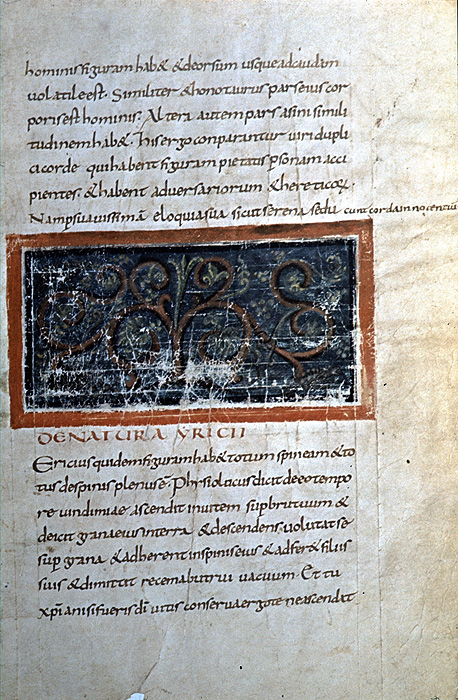 hominis figuram hab& & deorsum usque ad caudam
volatile est. Similiter & honoturus pars eius cor
poris est hominis. Altera autem pars asini simili
tudinem hab&. His ergo conparantur viri dupli
ci corde qui habent figuram pietatis p̄sonam acci
pientes. & habent adversariorum & hereticoꝝ.
Nam p̄suavissimā eloquia sua sicut serena sedu cunt cor dam nocentiū
DE NATURA YRICII
Ericius quidem figuram hab& & totum spineam & to
tus de spinis plenus ē. Physiolocus dicit de eo tempo
re vindimiae ascendit in vitem sup brutuum &
deicit grana eius in terra & descendens volutat se
sup grana & adherent in spinis eius & adfer& filiis
suis & dimittit recemabutrui vacuum. Et tu
xp̄iani si fueris dī vitis conserva ergo te ne ascendat